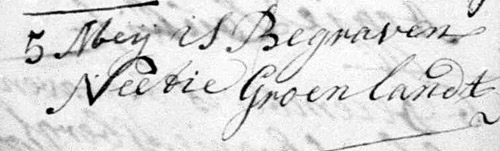 5 Meij is Begraven
Neetie Groenlandt